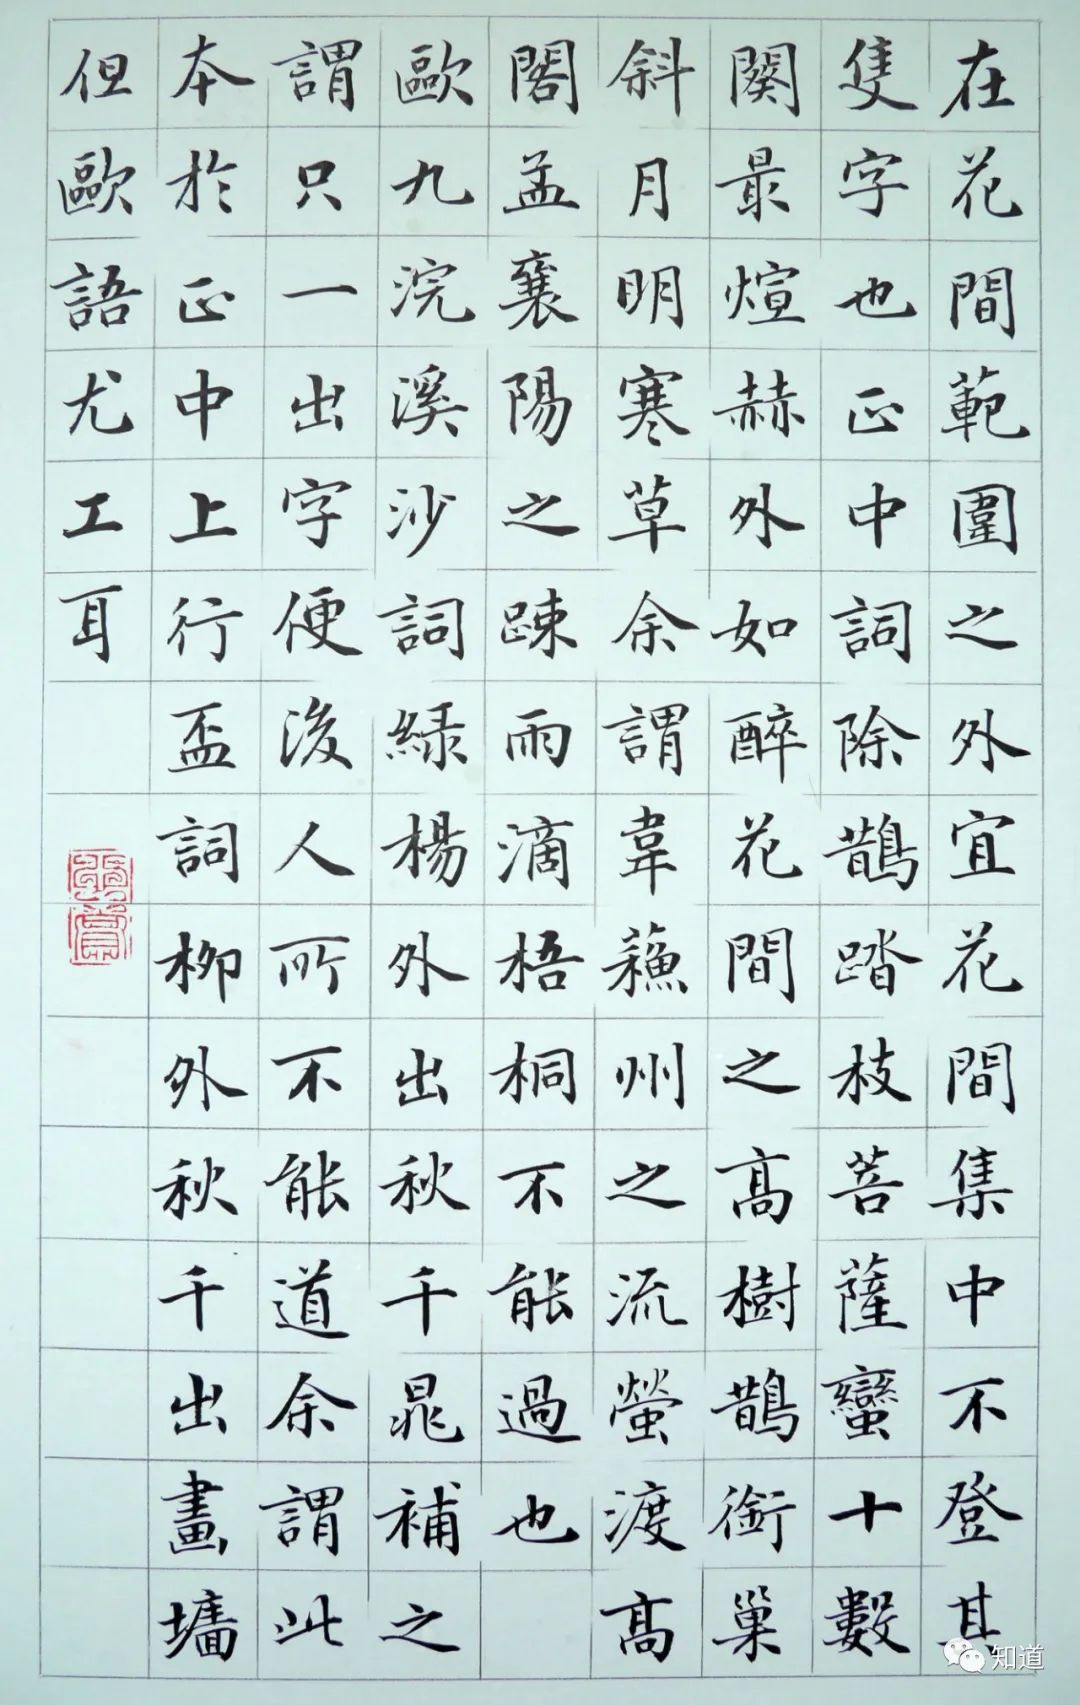 在花間範圍之外宜花間集中不登其
隻字也正中詞除鵲踏枝菩薩蠻十數
闋最煊赫外如醉花間之高樹鵲銜巢
斜月明寒草余謂韋蘇州之流螢渡高
閣孟襄陽之疎雨滴梧桐不能過也
歐九浣溪沙詞綠楊外出秋千晁補之
謂只一出字便後人所不能道余謂此
本於正中上行盃詞柳外秋千出畫墻
但歐語尤工耳
知道